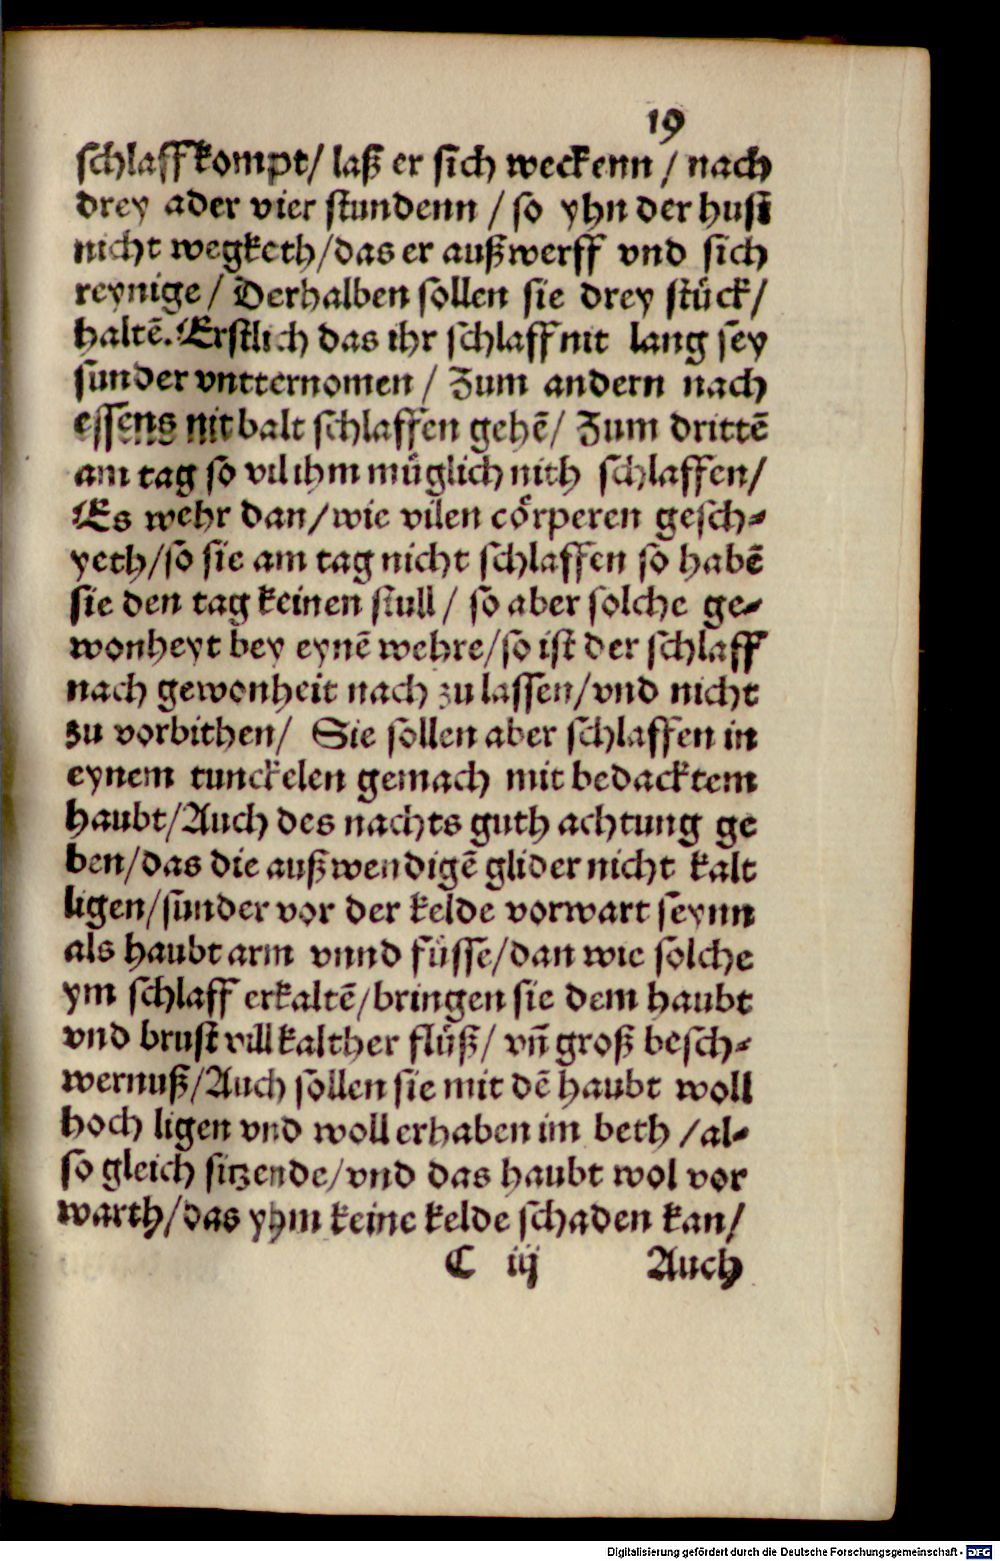 19
schlaff kompt/ laß er sich weckenn / nach
drey ader vier stundenn / so yhn der hust
nicht wegketh/das er außwerff vnd sich
reynige / Derhalben sollen sie drey stück/
haltē. Erstlich das ihr schlaff nit lang sey
sunder vntternomen / Zum andern nach
essens nit balt schlaffen gehē/ Zum drittē
am tag so vil ihm müglich nith schlaffen/
Es wehr dan/wie vilen cörperen gesch-
yeth/so sie am tag nicht schlaffen so habē
sie den tag keinen stull / so aber solche ge-
wonheyt bey eynē wehre/so ist der schlaff
nach gewonheit nach zu lassen/vnd nicht
zu vorbithen/ Sie sollen aber schlaffen in
eynem tunckelen gemach mit bedacktem
haubt/Auch des nachts guth achtung ge
ben/das die außwendigē glider nicht kalt
ligen/sunder vor der kelde vorwart seynn
als haubt arm vnnd füsse/dan wie solche
ym schlaff erkaltē/bringen sie dem haubt
vnd brust vill kalther flüß/ vñ groß besch-
wernuß/Auch sollen sie mit dē haubt woll
hoch ligen vnd woll erhaben im beth /al-
so gleich sitzende/vnd das haubt wol vor
warth/das yhm keine kelde schaden kan/
C iij Auch
Digitalisierung gefördert durch die Deutsche Forschungsgemeinschaft - DFG